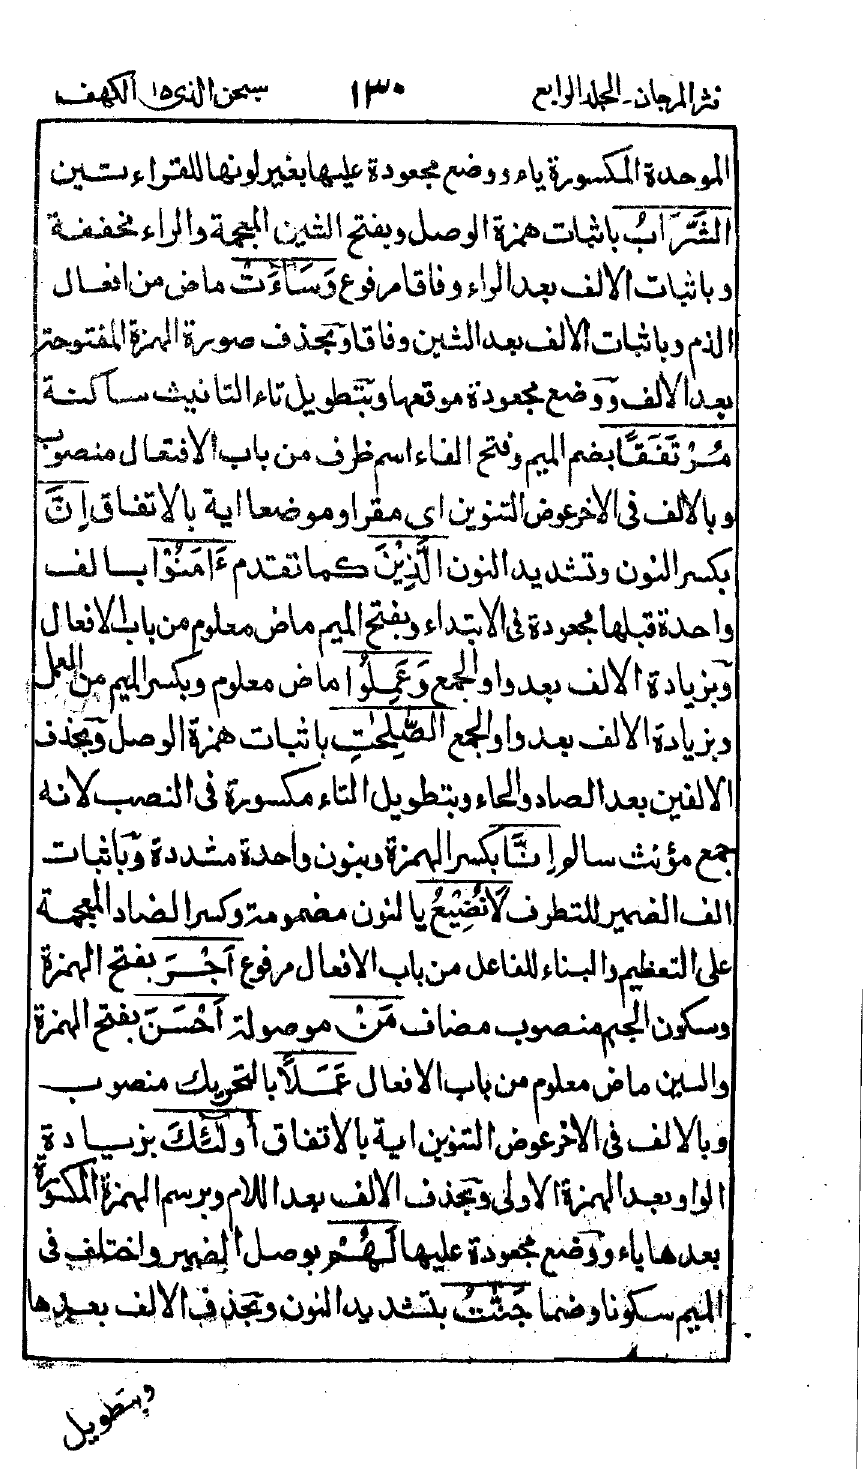 نثر المرجان ـ الجلد الرابع ١٣٠ سبحن الذى ١٥ الكهف
الموحدة المكسورة ياء ووضع مجعودة عليها بغير لونها للقراءتين
الشَّرَابُ باثبات همزة الوصل وبفتح الشين المعجمة والراء مخففة
وباثبات الالف بعد الراء وفاقا مرفوع وَسَاءَتْ ماض من افعال
الذم وباثبات الالف بعد الشين وفاقا وبحذف صورة الهمزة المفتوحة
بعد الالف ووضع مجعودة موقعها وبتطويل تاء التانيث ساكنة
مُرْتَفَقًا بضم الميم وفتح الفاء اسم ظرف من باب الافتعال منصوب
وبالالف فى الاخر عوض التنوين اى مقرا وموضعا اية بالاتفاق إِنَّ
بكسر النون وتشديد النون الَّذِيْنَ كما تقدم ءَامَنُوْا بالف
واحدة قبلها مجعودة فى الابتداء وبفتح الميم ماض معلوم من باب الافعال
وبزيادة الالف بعد واو الجمع وَعَمِلُوا ماض معلوم وبكسر الميم من العمل
وبزيادة الالف بعد واو الجمع الصّٰلِحٰتِ باثبات همزة الوصل وبحذف
الالفين بعد الصاد والحاء وبتطويل التاء مكسورة فى النصب لانه
جمع مؤنث سالم إِنَّا بكسر الهمزة وبنون واحدة مشددة وباثبات
الف الضمير للتطرف لَا نُضِيْعُ بالنون مضمومة وكسر الضاد المعجمة
على التعظيم والبناء للفاعل من باب الافعال مرفوع أَجْرَ بفتح الهمزة
وسكون الجيم منصوب مضاف مَنْ موصولة أَحْسَنَ بفتح الهمزة
والسين ماض معلوم من باب الافعال عَمَلًا بالتحريك منصوب
وبالالف فى الاخر عوض التنوين اية بالاتفاق أُولٰئِكَ بزيادة
الواو بعد الهمزة الاولى وبحذف الالف بعد اللام وبرسم الهمزة المكسورة
بعدها ياء ووضع مجعودة عليها لَهُمْ بوصل الضمير واختلف فى
الميم سكونا وضما جَنّٰتُ بتشديد النون وبحذف الالف بعدها
وبتطويل